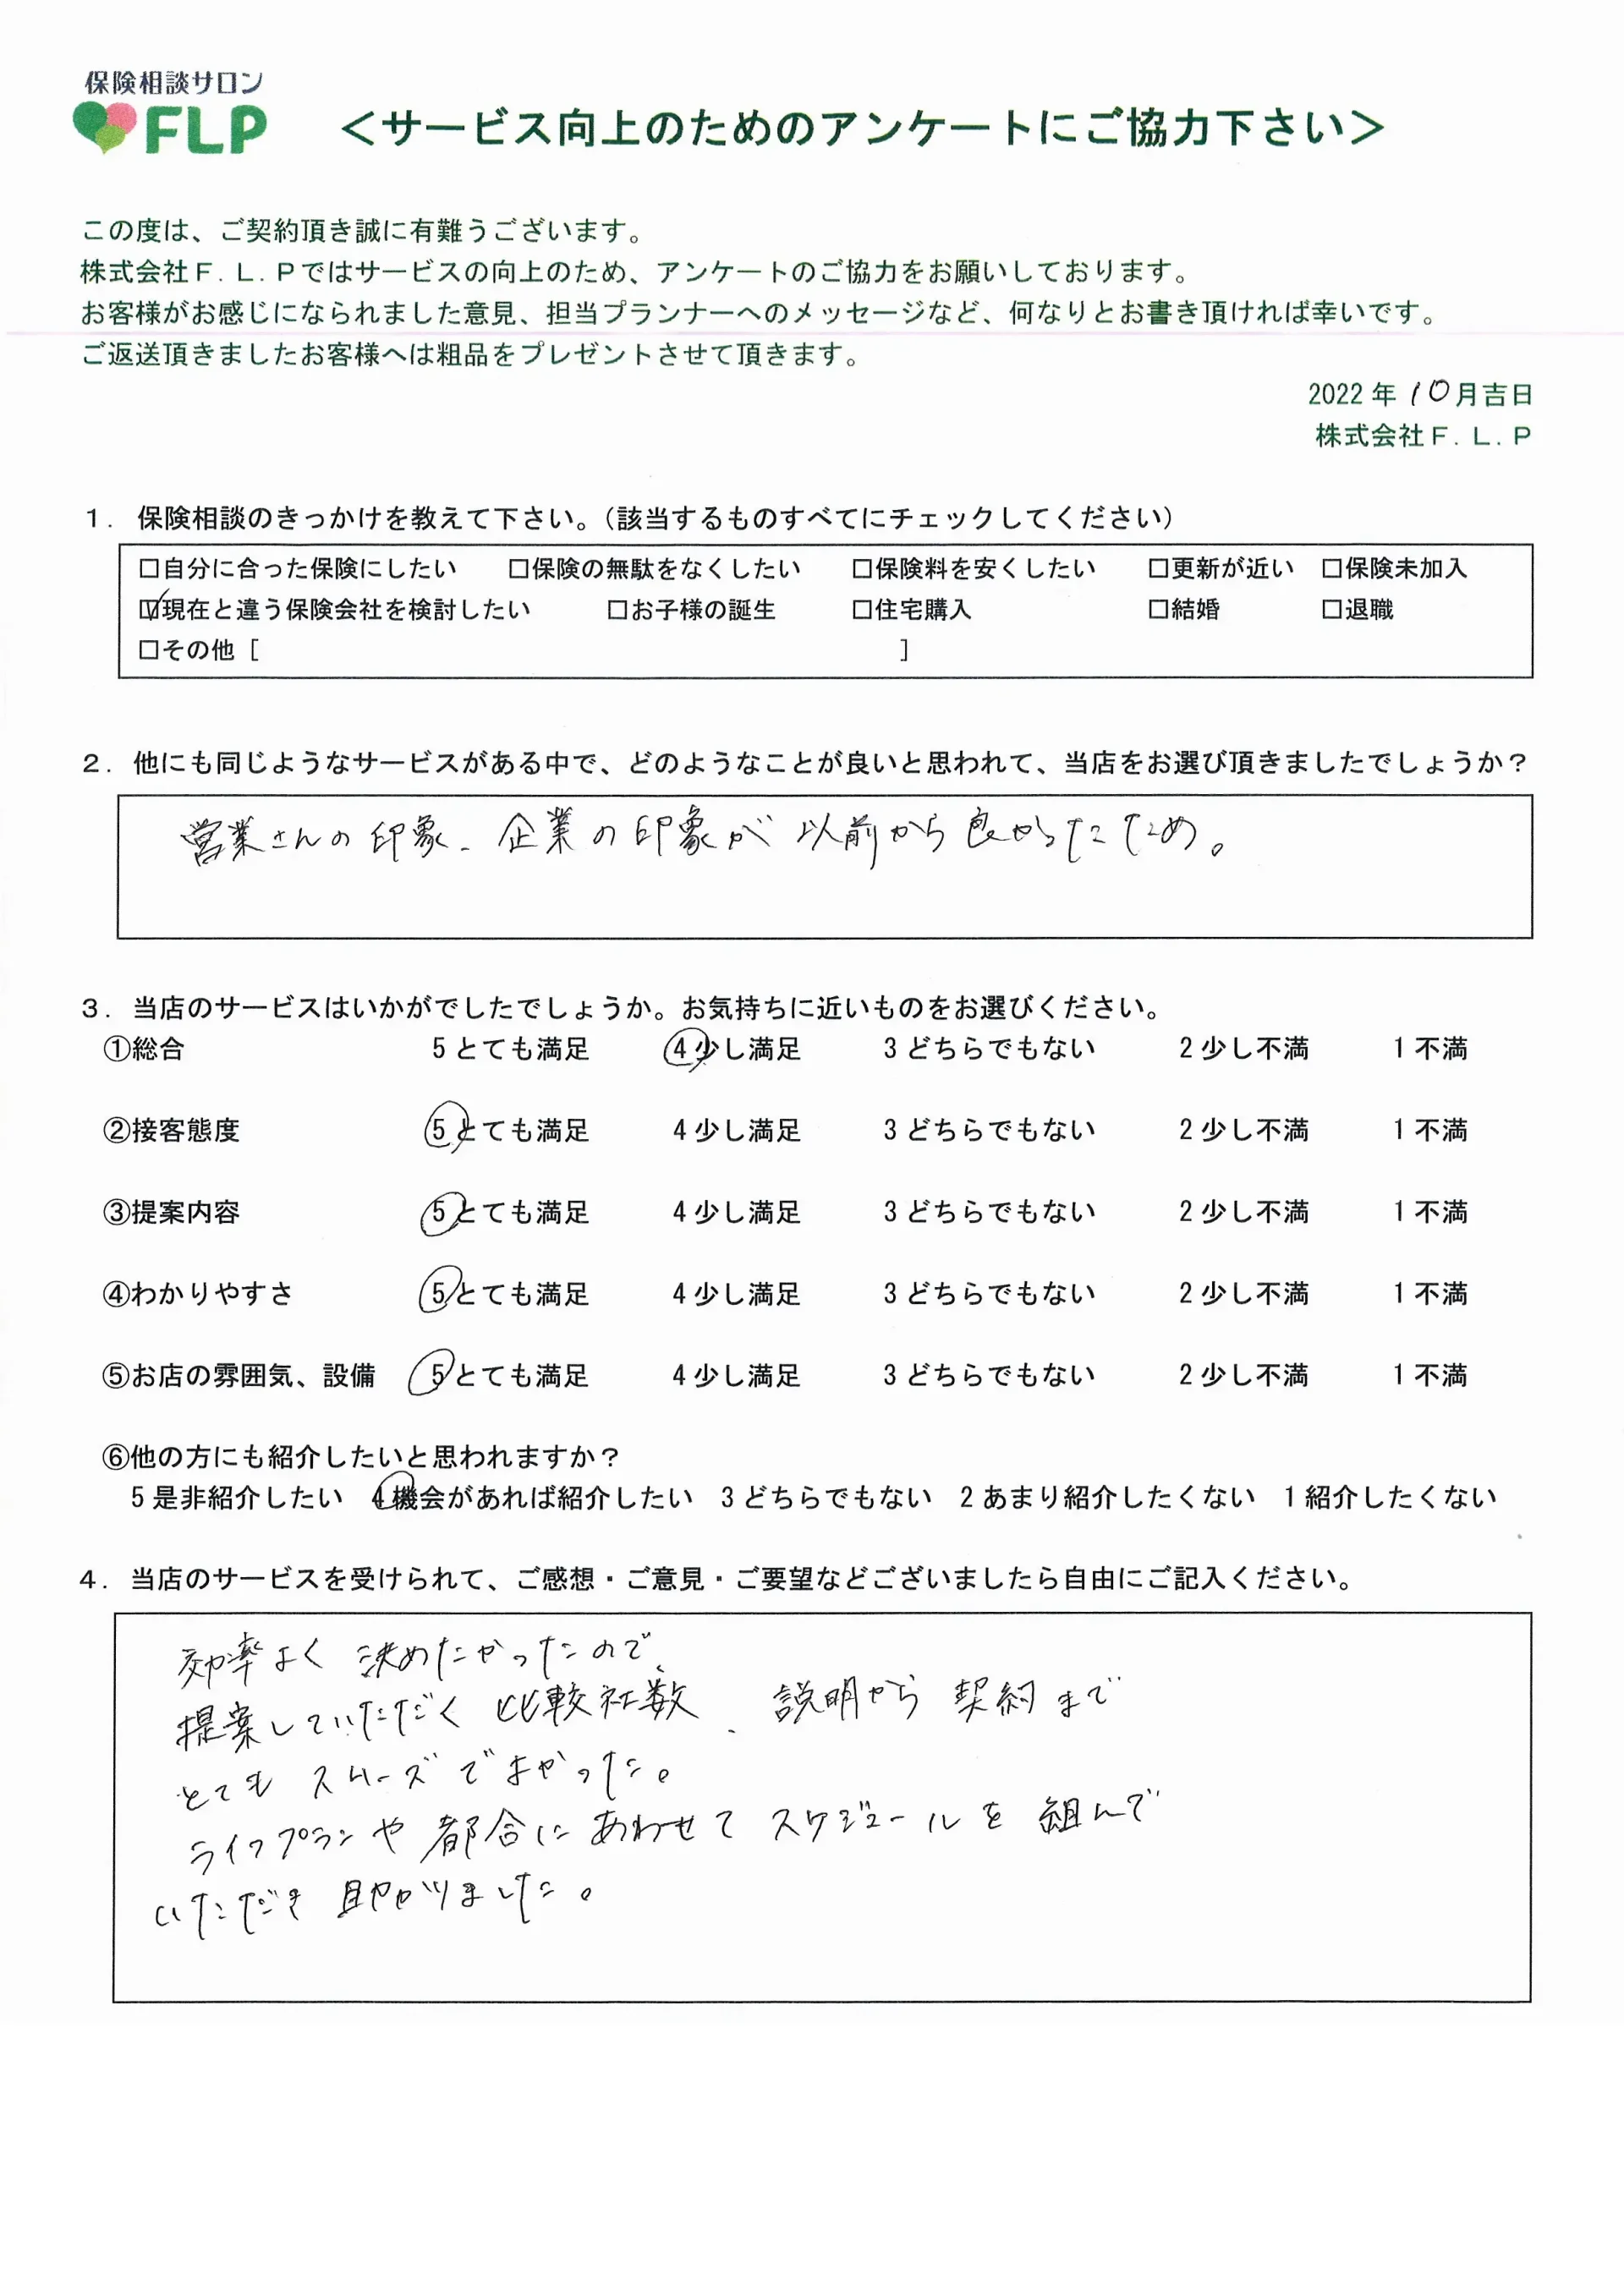 保険相談サロン
FLP
＜サービス向上のためのアンケートにご協力下さい＞
この度は、ご契約頂き誠に有難うございます。
株式会社Ｆ．Ｌ．Ｐではサービスの向上のため、アンケートのご協力をお願いしております。
お客様がお感じになられました意見、担当プランナーへのメッセージなど、何なりとお書き頂ければ幸いです。
ご返送頂きましたお客様へは粗品をプレゼントさせて頂きます。
2022年10月吉日
株式会社Ｆ．Ｌ．Ｐ
１．保険相談のきっかけを教えて下さい。（該当するものすべてにチェックしてください）
□自分に合った保険にしたい □保険の無駄をなくしたい □保険料を安くしたい □更新が近い □保険未加入
☑現在と違う保険会社を検討したい □お子様の誕生 □住宅購入 □結婚 □退職
□その他［ ］
２．他にも同じようなサービスがある中で、どのようなことが良いと思われて、当店をお選び頂きましたでしょうか？
営業さんの印象、企業の印象が以前から良かったため。
３．当店のサービスはいかがでしたでしょうか。お気持ちに近いものをお選びください。
①総合 5とても満足 4少し満足 3どちらでもない 2少し不満 1不満
②接客態度 5とても満足 4少し満足 3どちらでもない 2少し不満 1不満
③提案内容 5とても満足 4少し満足 3どちらでもない 2少し不満 1不満
④わかりやすさ 5とても満足 4少し満足 3どちらでもない 2少し不満 1不満
⑤お店の雰囲気、設備 5とても満足 4少し満足 3どちらでもない 2少し不満 1不満
⑥他の方にも紹介したいと思われますか？
5是非紹介したい 4機会があれば紹介したい 3どちらでもない 2あまり紹介したくない 1紹介したくない
４．当店のサービスを受けられて、ご感想・ご意見・ご要望などございましたら自由にご記入ください。
効率よく決めたかったので、
提案していただく比較社数、説明から契約まで
とてもスムーズでよかった。
ライフプランや都合にあわせてスケジュールを組んで
いただき助かりました。